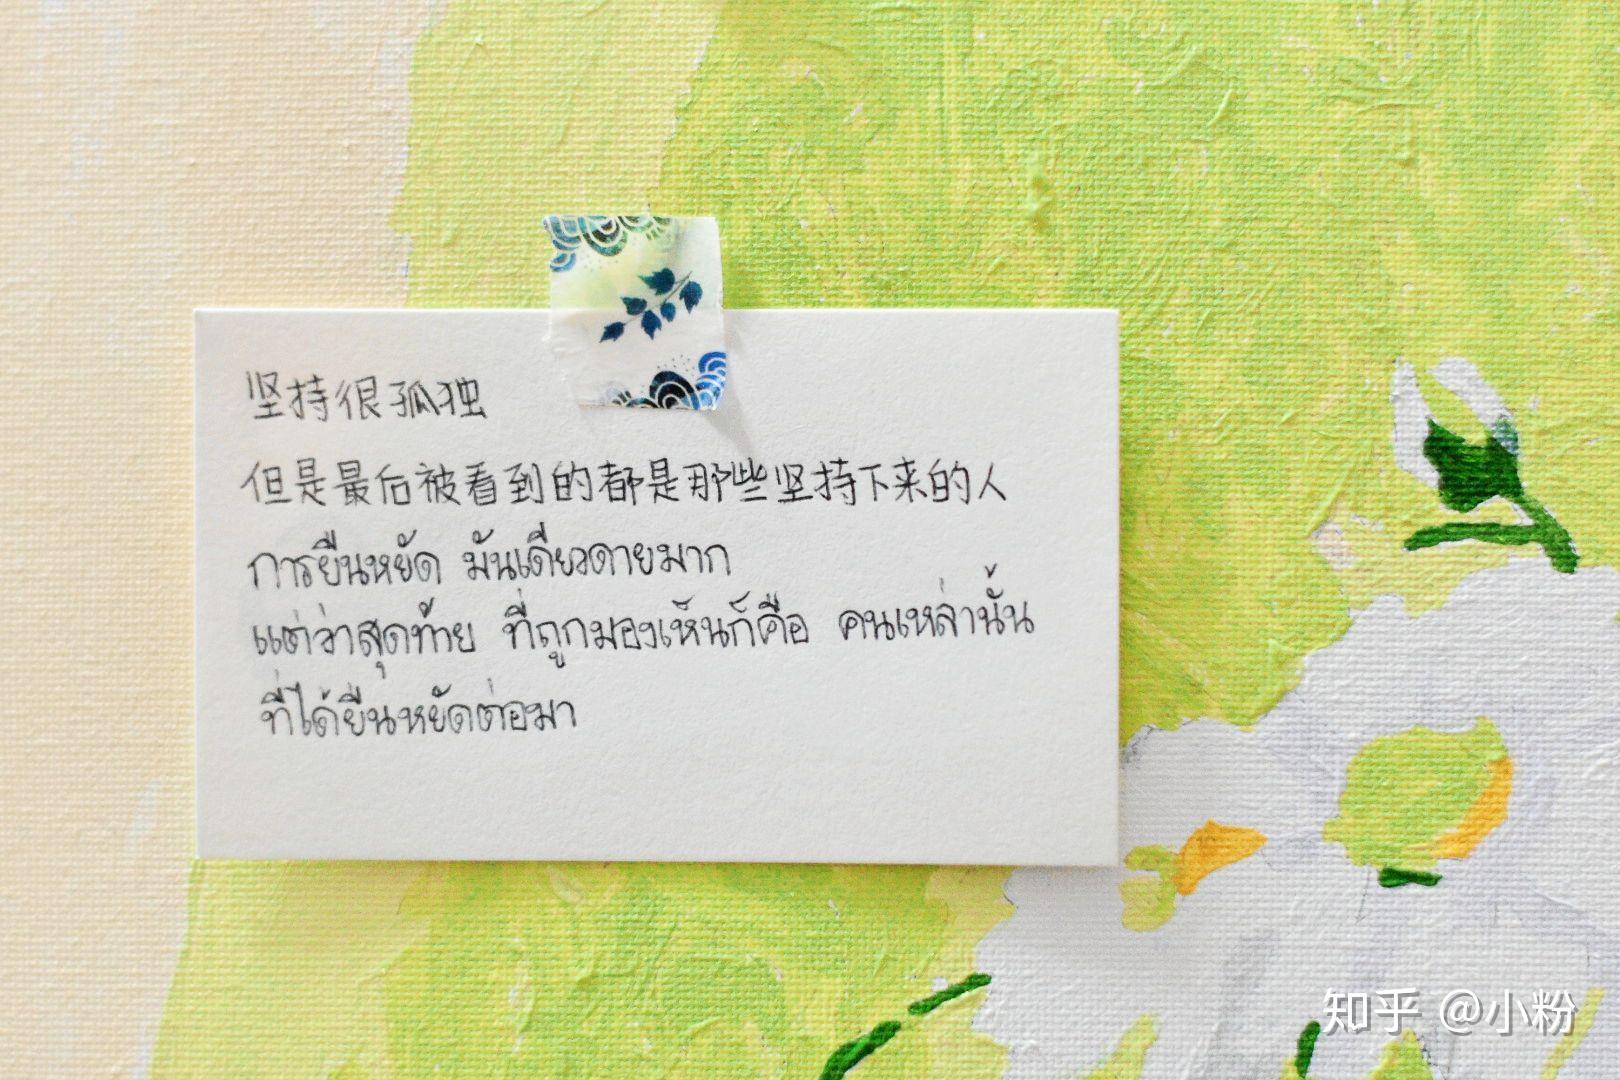 坚持很孤独
但是最后被看到的都是那些坚持下来的人
การยืนหยัด มันเดียวดายมาก
แต่ว่าสุดท้าย ที่ถูกมองเห็นก็คือ คนเหล่านั้น
ที่ได้ยืนหยัดต่อมา
知乎 @小粉